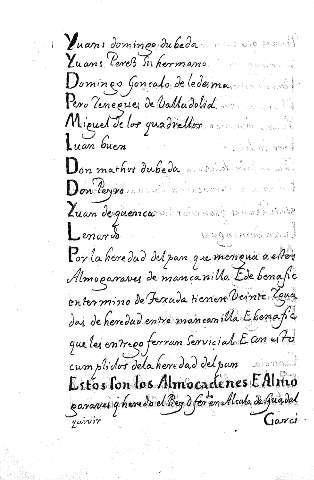 Yuans domingo dubeda
Yuans Pereß su hermano
Domingo Gonçalo de ledesma
Pero Venegues de Valladolid
Miguel de los quadrellos
Luan buen
Don mathys dubeda
Don Peyro
Yuan de quenca
Lenardo
Por la heredad del pan que mengua a estos
Almogaraves de mancanilla E de benafic
en termino de Texada tienen Veinte Yguа
das de heredad entre mancanilla E benafic
que les entrego ferran Servicial E con esto
cumplidos de la heredad del pan
Estos son los Almocadenes E Almo
garaves q heredo el Rey D ferdo en Alcala de Guadal
quivir Garci